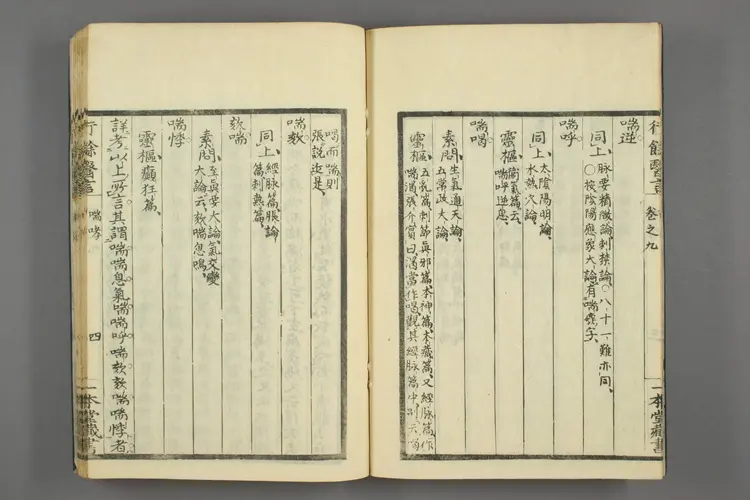 行餘醫言 卷之九
喘逆
同上、脉要精微論、刺禁論、○八十一難亦同、
○按陰陽應象大論、有喘麤字、
喘呼
同上、太陰陽明論、
水熱穴論、
靈樞、衞氣篇云、
喘呼逆息、
喘喝
素問、生氣通天論、
五常政大論、
靈樞、五亂篇、刺節眞邪篇、本神篇、本藏篇、又經脉篇、作
喘渴、張介賓曰、渴當作喝、觀其經脉篇中、
一本堂藏書
喝而喘則
張説近是、
喘欬
同上、經脉篇、脹論
篇、刺熱篇、
欬喘
素問、至眞要大論、氣交變
大論云、欬喘息鳴、
喘悸
靈樞癲狂篇、
詳考以上所言、其謂喘、喘息、氣喘、喘呼、喘欬、欬喘、喘悸者、
行餘醫言 喘哮 四 一本堂藏書